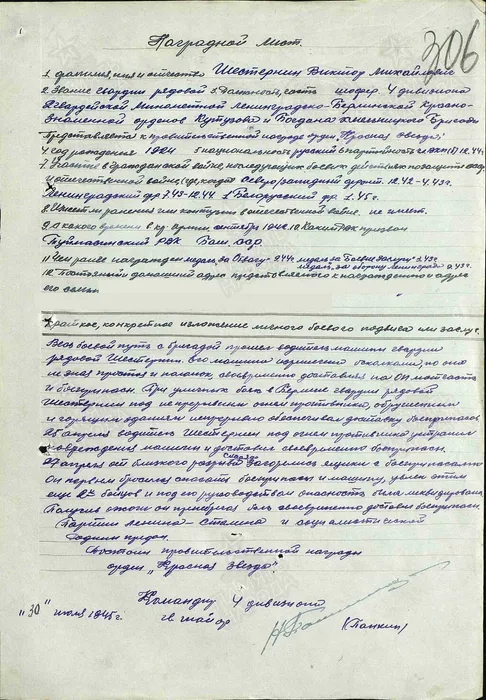 306
Наградной лист.
1. Фамилия, имя и отчество Шестернин Виктор Михайлович
2. Звание гвардии рядовой 3. Должность, часть шофер 4 дивизиона
Гвардейской Минометной Ленинградско-Берлинской Красно-
знаменной орденов Кутузова и Богдана Хмельницкого Бригады
Представляется к правительственной награде орден "Красная звезда"
4. Год рождения 1924 5 национальность русский 6 партийность
7. Участие в гражданской войне, последующих боевых действиях по защите СССР
и отечественной войне (где, когда) Северо/западный фронт 12.42-4.43г.
Ленинградский фр 7.43-12.44 1 Белорусский фр. 1.45г.
8. Имеет ли ранения или контузии в отечественной войне. не имеет.
9. С какого времени в кр. армии сентября 1942 10 Каким РВК призван
Туймазинский РВК Баш. АССР
11. Чем ранее награжден медаль "за Отвагу" 9.44г медаль "за Боевые заслуги"
медаль "за оборону Ленинграда"
12. Постоянный домашний адрес представляемого к награждению и адрес
его семьи
Краткое, конкретное изложение личного боевого подвига или заслуг.
Весь боевой путь с бригадой прошел водитель машины гвардии
рядовой Шестернин. Его машина осколками, но она
не зная простоя и поломок своевременно доставляла на ОП матчасть
и боеприпасы. При уличных боях в Берлине гвардии рядовой
Шестернин под непрерывным огнем противника, обрушенных
и горящих зданий непрерывно обеспечивал доставку боеприпасов
25 апреля водитель Шестернин под огнем противника устранил
повреждения машины и доставил своевременно боеприпасы.
27 апреля от близкого разрыва снаряда загорелись ящики с боеприпасами
Он первым бросился спасать боеприпасы и машину, увлек этим
еще 2х бойцов и под его руководством опасность была ликвидирована
Получив ожоги он своевременно доставил боеприпасы.
Партии Ленина-Сталина и социалистической
Родине предан.
Достоин правительственной награды
орден "Красная звезда"
Командир 4 дивизиона
гв майор
(Панкин)
"30" 1945г